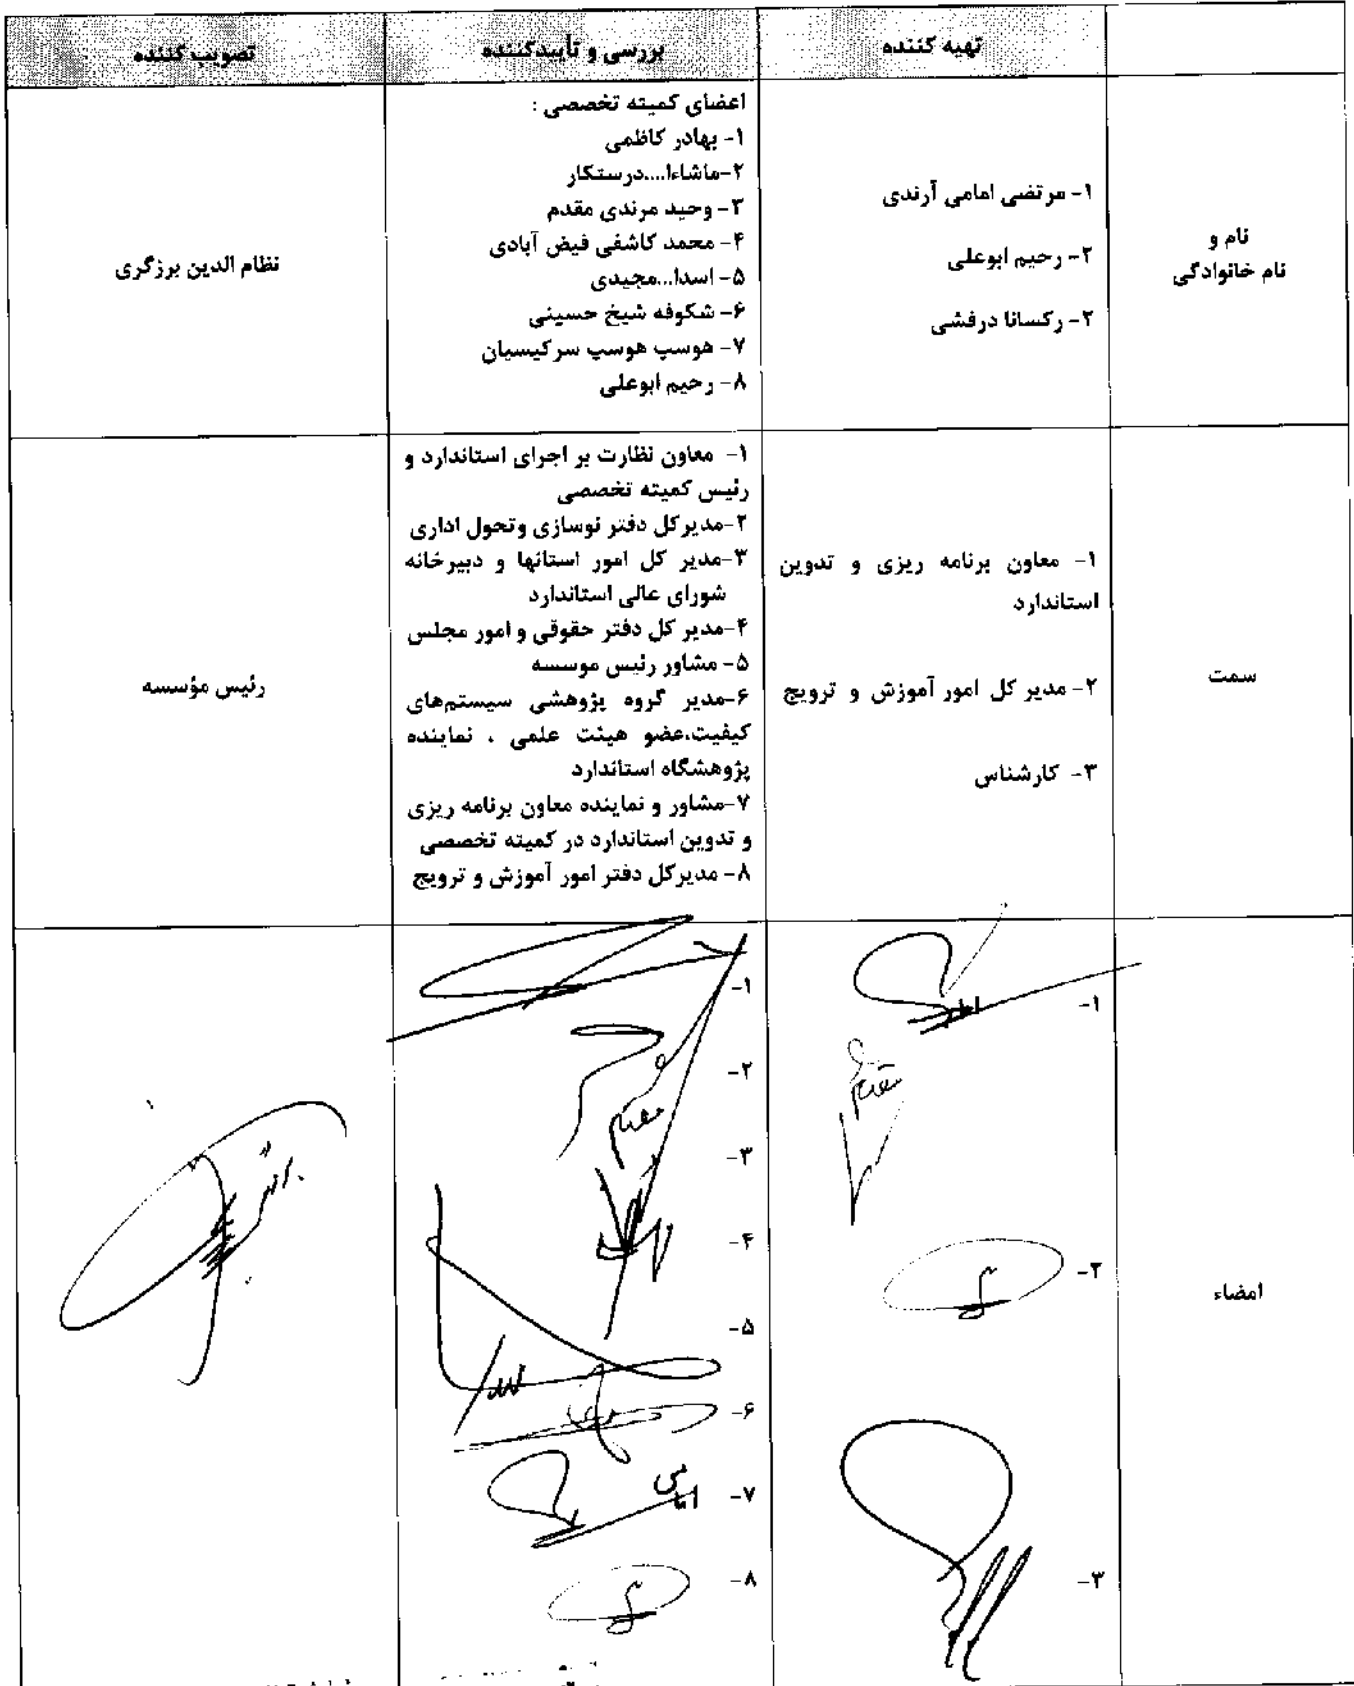 تهیه کننده
بررسی و تأییدکننده
تصویب کننده
نام و
نام خانوادگی
۱- مرتضی امامی آرندی
۲- رحیم ابوعلی
۲- رکسانا درفشی
اعضای کمیته تخصصی :
۱- بهادر کاظمی
۲-ماشاءا....درستکار
۳- وحید مرندی مقدم
۴- محمد کاشفی فیض آبادی
۵- اسدا...مجیدی
۶- شکوفه شیخ حسینی
۷- هوسپ هوسپ سرکیسیان
۸- رحیم ابوعلی
نظام الدین برزگری
سمت
۱- معاون برنامه ریزی و تدوین
استاندارد
۲- مدیر کل امور آموزش و ترویج
۳- کارشناس
۱- معاون نظارت بر اجرای استاندارد و
رئیس کمیته تخصصی
۲-مدیرکل دفتر نوسازی وتحول اداری
۳-مدیر کل امور استانها و دبیرخانه
شورای عالی استاندارد
۴-مدیر کل دفتر حقوقی و امور مجلس
۵- مشاور رئیس موسسه
۶-مدیر گروه پژوهشی سیستم‌های
کیفیت،عضو هیئت علمی ، نماینده
پژوهشگاه استاندارد
۷-مشاور و نماینده معاون برنامه ریزی
و تدوین استاندارد در کمیته تخصصی
۸- مدیرکل دفتر امور آموزش و ترویج
رئیس مؤسسه
امضاء
۱-
۲-
۳-
۱-
۲-
۳-
۴-
۵-
۶-
۷-
۸-